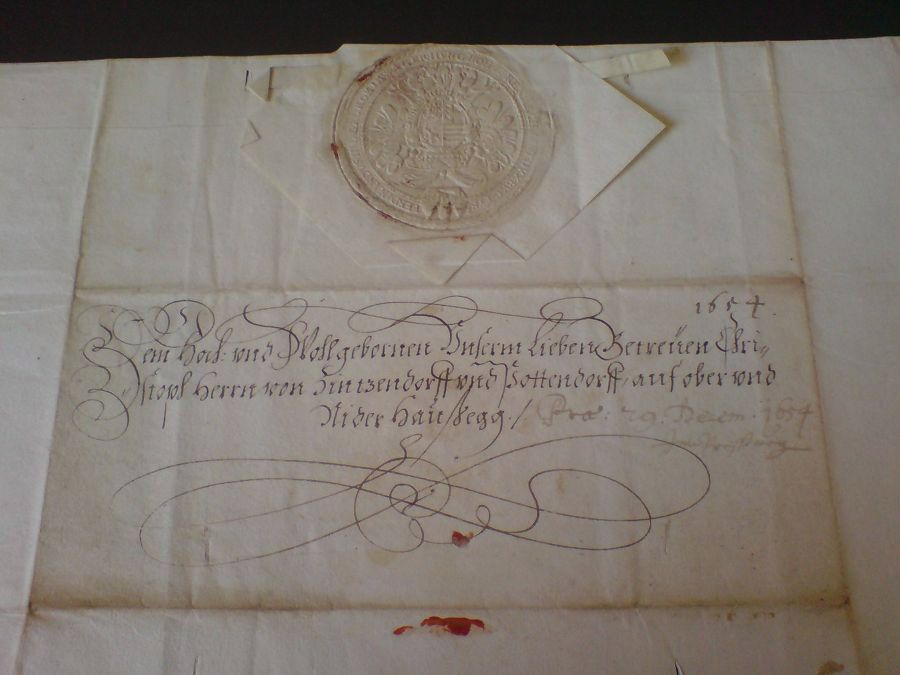 1654.
Dem Hoch- und Wollgebornen Unserm Lieben Getreüen Chri„
„stoph Herrn von Zintzendorff und Pottendorff, auf ober und
Nider Haüsegg. / Præ: 29. Decem. 1654